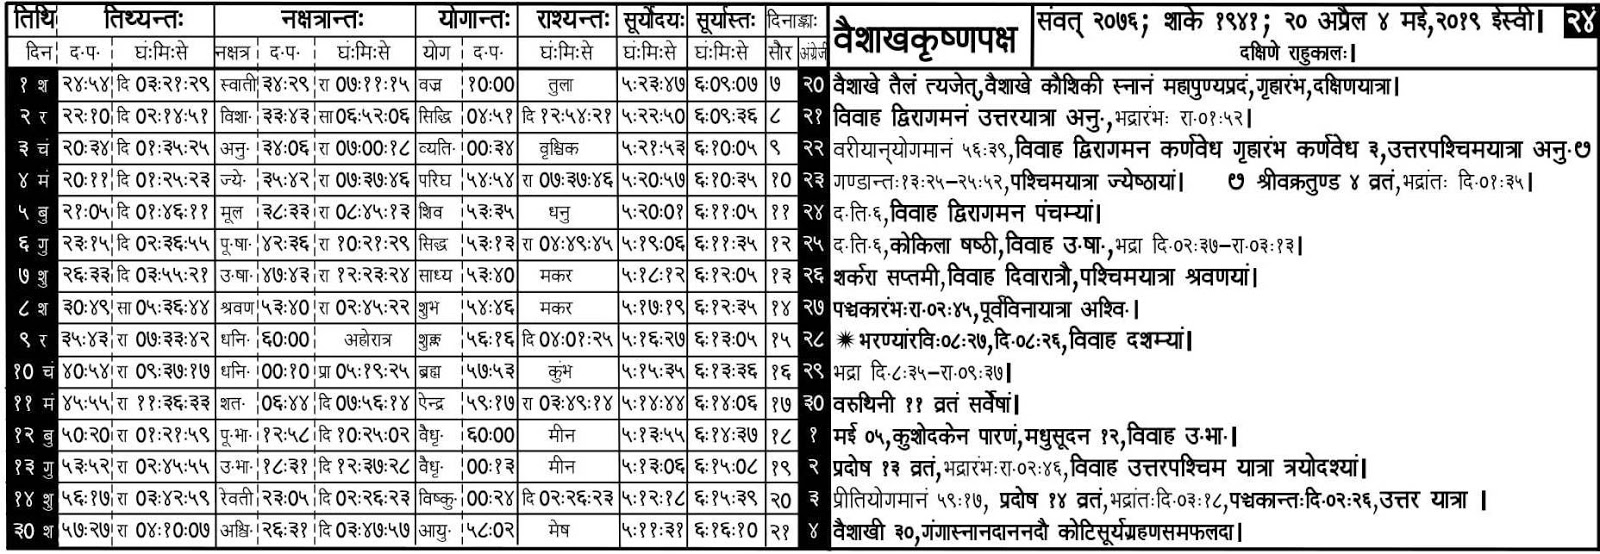 तिथि तिथ्यन्तः नक्षत्रान्तः योगान्तः राश्यन्तः सूर्योदयः सूर्यास्तः दिनाङ्काः वैशाखकृष्णपक्ष संवत् २०७६; शाके १९४१; २० अप्रैल ४ मई,२०१९ ईस्वी। २४
दिन द॰प॰ घंःमिःसे नक्षत्र द॰प॰ घंःमिःसे योग द॰प॰ घंःमिःसे घंःमिःसे घंःमिःसे सौर अंग्रेजी दक्षिणे राहुकालः।
१ श २४ः५४ दि ०३ः२१ः२९ स्वाती ३४ः२९ रा ०७ः११ः१५ वज्र १०ः०० तुला ५ः२३ः४७ ६ः०९ः०७ ७ २० वैशाखे तैलं त्यजेत्,वैशाखे कौशिकी स्नानं महापुण्यप्रदं,गृहारंभ,दक्षिणयात्रा।
२ र २२ः१० दि ०२ः१४ः५१ विशा॰ ३३ः४३ सा ०६ः५२ः०६ सिद्धि ०४ः५१ दि १२ः५४ः२१ ५ः२२ः५० ६ः०९ः३६ ८ २१ विवाह द्विरागमनं उत्तरयात्रा अनु॰,भद्रारंभः रा॰०१ः५२।
३ चं २०ः३४ दि ०१ः३५ः२५ अनु॰ ३४ः०६ रा ०७ः००ः१८ व्यति॰ ००ः३४ वृश्चिक ५ः२१ः५३ ६ः१०ः०५ ९ २२ वरीयान्‌योगमानं ५६ः३९,विवाह द्विरागमन कर्णवेध गृहारंभ कर्णवेध ३,उत्तरपश्चिमयात्रा अनु॰७
४ मं २०ः११ दि ०१ः२५ः२३ ज्ये॰ ३५ः४२ रा ०७ः३७ः४६ परिघ ५४ः५४ रा ०७ः३७ः४६ ५ः२०ः५७ ६ः१०ः३५ १० २३ गण्डान्तः१३ः२५–२५ः५२,पश्चिमयात्रा ज्येष्ठायां। ७ श्रीवक्रतुण्ड ४ व्रतं,भद्रांतः दि॰०१ः३५।
५ बु २१ः०५ दि ०१ः४६ः११ मूल ३८ः३३ रा ०८ः४५ः१३ शिव ५३ः३५ धनु ५ः२०ः०१ ६ः११ः०५ ११ २४ द॰ति॰६,विवाह द्विरागमन पंचम्यां।
६ गु २३ः१५ दि ०२ः३६ः५५ पू॰षा॰ ४२ः३६ रा १०ः२१ः२९ सिद्ध ५३ः१३ रा ०४ः४९ः४५ ५ः१९ः०६ ६ः११ः३५ १२ २५ द॰ति॰६,कोकिला षष्ठी,विवाह उ॰षा॰,भद्रा दि॰०२ः३७–रा॰०३ः१३।
७ शु २६ः३३ दि ०३ः५५ः२१ उ॰षा॰ ४७ः४३ रा १२ः२३ः२४ साध्य ५३ः४० मकर ५ः१८ः१२ ६ः१२ः०५ १३ २६ शर्करा सप्तमी,विवाह दिवारात्रौ,पश्चिमयात्रा श्रवणयां।
८ श ३०ः४९ सा ०५ः३६ः४४ श्रवण ५३ः४० रा ०२ः४५ः२२ शुभ ५४ः४६ मकर ५ः१७ः१९ ६ः१२ः३५ १४ २७ पञ्चकारंभःरा॰०२ः४५,पूर्वविनायात्रा अश्वि॰।
९ र ३५ः४३ रा ०७ः३३ः४२ धनि॰ ६०ः०० अहोरात्र शुक्ल ५६ः१६ दि ०४ः०१ः२५ ५ः१६ः२७ ६ः१३ः०५ १५ २८ ✷ भरण्यांरविः०८ः२७,दि॰०८ः२६,विवाह दशम्यां।
१० चं ४०ः५४ रा ०९ः३७ः१७ धनि॰ ००ः१० प्रा ०५ः१९ः२५ ब्रह्म ५७ः५३ कुंभ ५ः१५ः३५ ६ः१३ः३६ १६ २९ भद्रा दि॰८ः३५–रा॰०९ः३७।
११ मं ४५ः५५ रा ११ः३६ः३३ शत॰ ०६ः४४ दि ०७ः५६ः१४ ऐन्द्र ५९ः१७ रा ०३ः४९ः१४ ५ः१४ः४४ ६ः१४ः०६ १७ ३० वरुथिनी ११ व्रतं सर्वेषां।
१२ बु ५०ः२० रा ०१ः२१ः५९ पू॰भा॰ १२ः५८ दि १०ः२५ः०२ वैधृ॰ ६०ः०० मीन ५ः१३ः५५ ६ः१४ः३७ १८ १ मई ०५,कुशोदकेन पारणं,मधुसूदन १२,विवाह उ॰भा॰।
१३ गु ५३ः५२ रा ०२ः४५ः५५ उ॰भा॰ १८ः३१ दि १२ः३७ः२८ वैधृ॰ ००ः१३ मीन ५ः१३ः०६ ६ः१५ः०८ १९ २ प्रदोष १३ व्रतं,भद्रारंभःरा॰०२ः४६,विवाह उत्तरपश्चिम यात्रा त्रयोदश्यां।
१४ शु ५६ः१७ रा ०३ः४२ः५९ रेवती २३ः०५ दि ०२ः२६ः२३ विष्कु॰ ००ः२४ दि ०२ः२६ः२३ ५ः१२ः१८ ६ः१५ः३९ २० ३ प्रीतियोगमानं ५९ः१७, प्रदोष १४ व्रतं,भद्रांतःदि॰०३ः१८,पञ्चकान्तःदि॰०२ः२६,उत्तर यात्रा ।
३० श ५७ः२७ रा ०४ः१०ः०७ अश्वि॰ २६ः३१ दि ०३ः४७ः५७ आयु॰ ५८ः०२ मेष ५ः११ः३१ ६ः१६ः१० २१ ४ वैशाखी ३०,गंगास्नानदाननदौ कोटिसूर्यग्रहणसमफलदा।